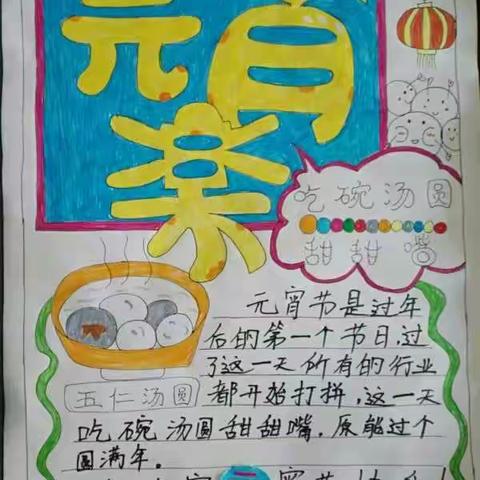 元宵
乐
吃碗汤圆
甜甜嘴
元宵节是过年
后的第一个节日,过
了这一天所有的行业
五仁汤圆
都开始打拼,这一天
吃碗汤圆甜甜嘴,原能过个
圆满年。